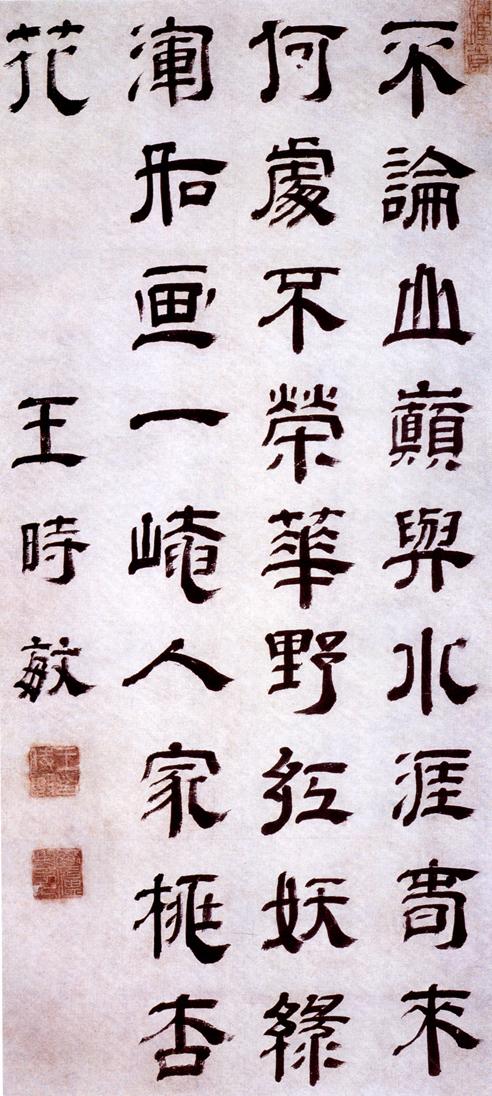 不論山巔與水涯春來
何處不榮華野紅妖綠
渾如画一崦人家桃杏
花
王時敏